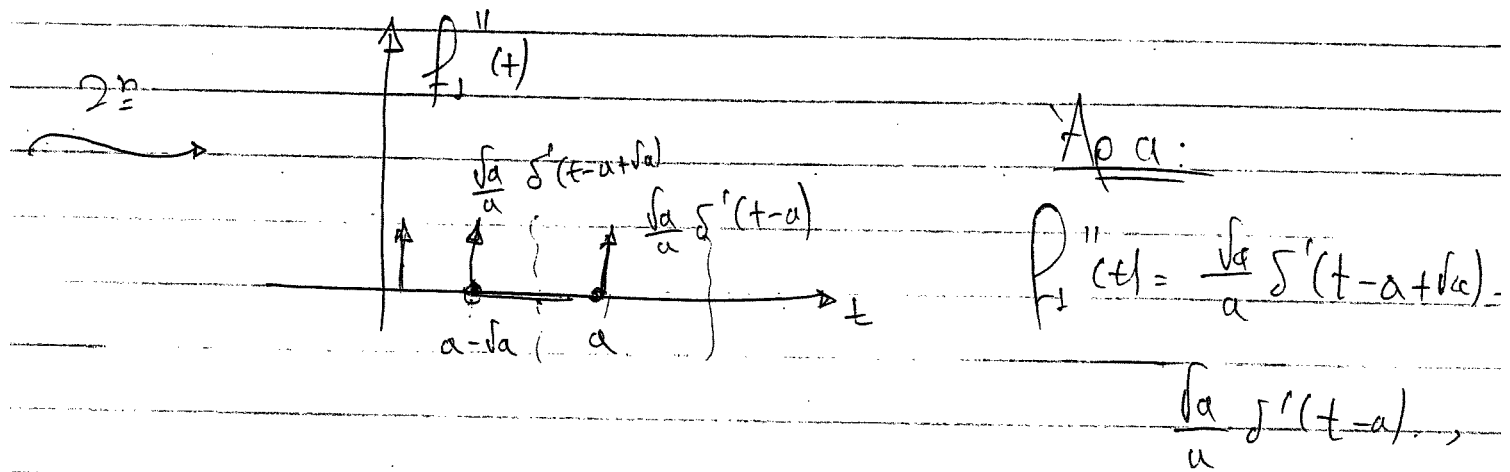 f₁''(t)
2η
√a/a δ'(t-a+√a)
√a/a δ'(t-a)
a-√a
a
t
Άρα:
f₁''(t) = √a/a δ'(t-a+√a) -
√a/a δ'(t-a).,